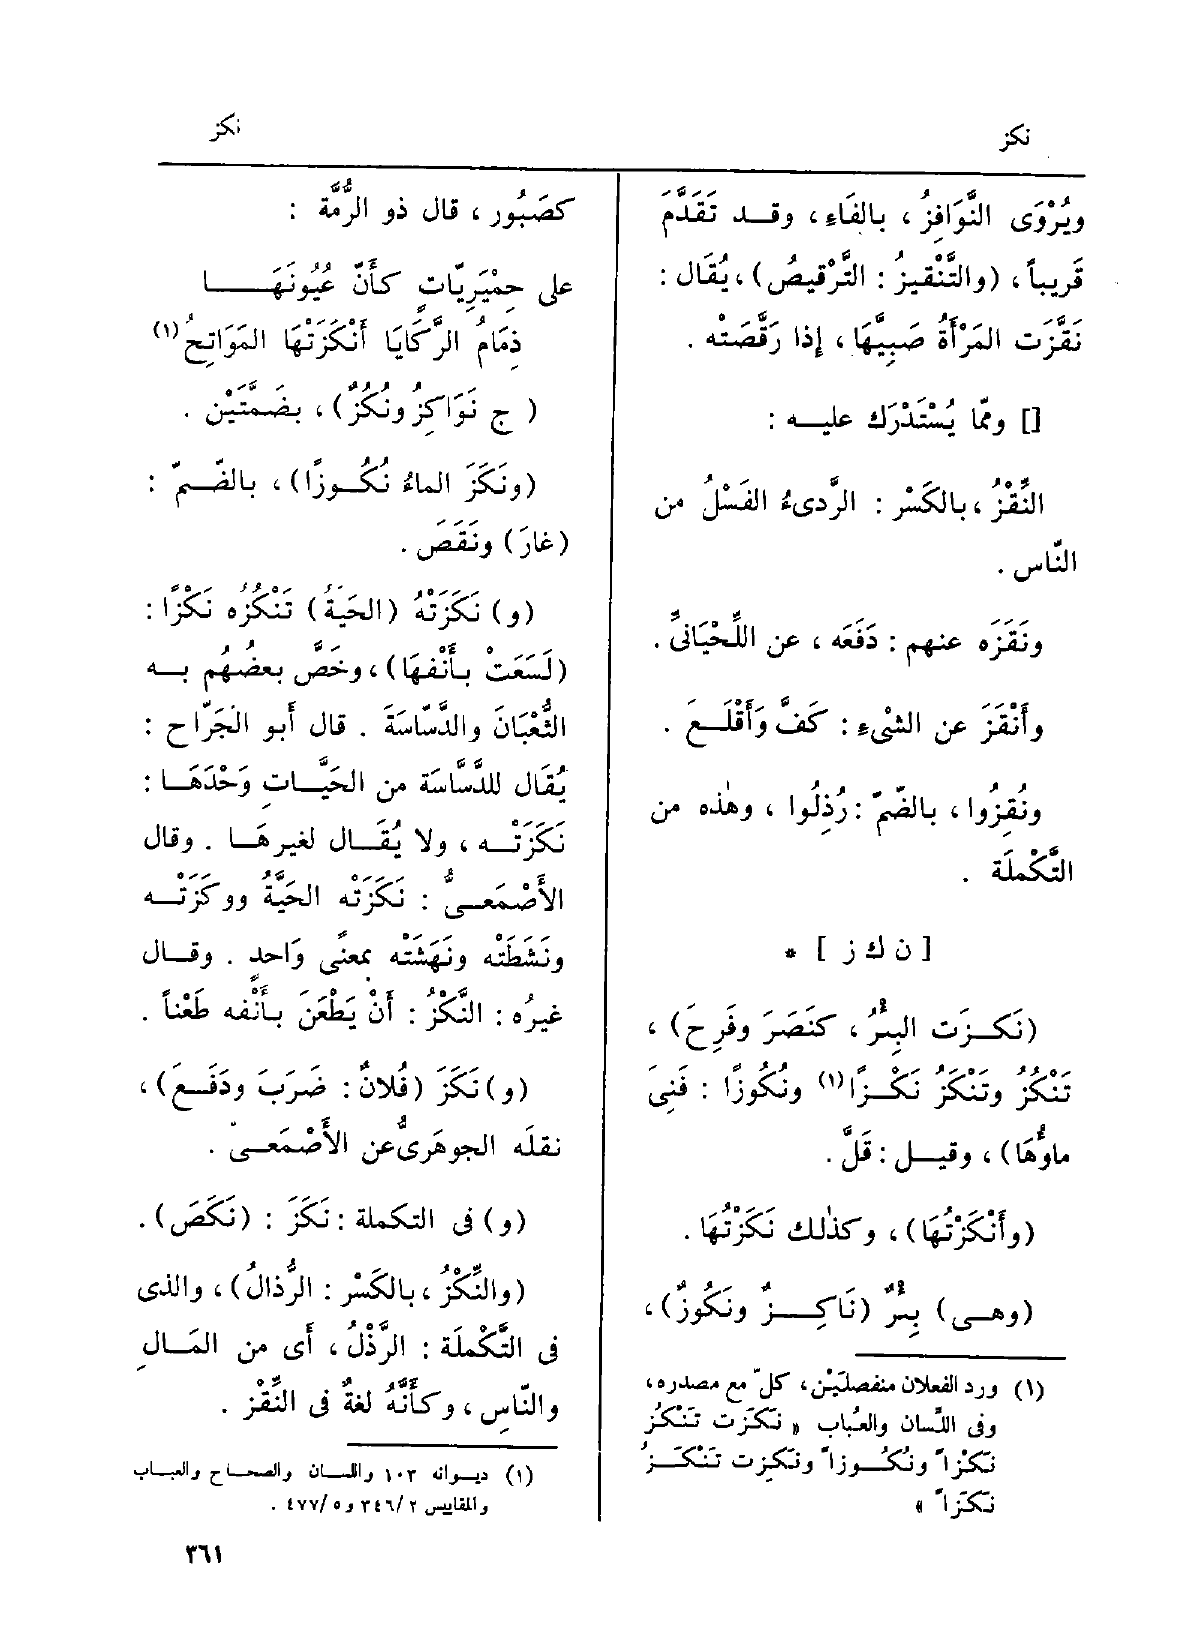 نكز
نكز
ويُرْوَى النَّوَافِزُ ، بالفَاءِ ، وقـد تَقَدَّمَ
قَرِيباً ، (والتَّنْقِيزُ : التَّرْقِيصُ) ، يُقَال :
نَقَّزَت المَرْأَةُ صَبِيَّهَا ، إذا رَقَّصَتْه .
[] وممّا يُسْتَدْرَك عليـه :
النِّقْزُ ، بالكَسْر : الرَّدِىءُ الفَسْلُ من
النّاس .
ونَقَزَه عنهم : دَفَعَه ، عن اللِّحْيَانِىِّ .
وأَنْقَزَ عن الشىْءِ : كَفَّ وَأَقْلَـعَ .
ونُقِزُوا ، بالضّمّ : رُذِلُوا ، وهٰذه من
التَّكْمِلَة .
[ ن ك ز ] *
(نَكَـزَت البِئْرُ ، كنَصَرَ وفَرِحَ) ،
تَنْكُزُ وتَنْكَزُ نَكْـزًا(١) ونُكُوزًا : فَنِىَ
ماوُهَا) ، وقيـل : قَلَّ .
(وأَنْكَزْتُهَا) ، وكذٰلك نَكَزْتُهَا .
(وهـى) بِئْرٌ (نَاكِـزٌ ونَكُوزٌ) ،
(١) ورد الفعلان منفصلَيْن ، كلّ مع مصدره ،
وفى اللسان والعُباب « نَكَزَت تَنْكُزُ
نَكْزاً ونُكُـوزاً ونَكِزت تَنْكَـزُ
نَكَزاً »
كصَبُور ، قال ذو الرُّمَّة :
على حِمْيَرِيّاتٍ كأَنَّ عُيُونَهَـا
ذِمَامُ الرَّكَايَا أَنْكَزَتْهَا المَوَاتِحُ(١)
( ج نَوَاكِزُ ونُكُزٌ) ، بضَمَّتَيْن .
(ونَكَزَ الماءُ نُكُـوزًا) ، بالضَّـمّ :
(غَارَ) ونَقَصَ .
(و) نَكَزَتْهُ (الحَيَّةُ) تَنْكُزُه نَكْزًا :
(لَسَعَتْ بأَنْفِهَا) ، وخَصَّ بعضُهُم بـه
الثُّعْبَانَ والدَّسّاسَةَ . قال أبو الجَرّاح :
يُقَال للدَّسَّاسَة من الحَيَّـاتِ وَحْدَهَـا :
نَكَزَتْـه ، ولا يُقَـال لغيرهَـا . وقال
الأَصْمَعـىُّ : نَكَزَتْه الحَيَّةُ ووَكَزَتْـه
ونَشَطَتْه ونَهَشَتْه بمعنًى وَاحدٍ . وقـال
غيرُه : النَّكْزُ : أَنْ يَطْعَنَ بأَنْفِه طَعْناً .
(و) نَكَزَ (فُلانٌ : ضَرَبَ ودَفَـعَ) ،
نقلَه الجوهَرىُّ عن الأَصْمَعـىّ .
(و) فى التكملة : نَكَزَ : (نَكَصَ) .
(والنِّكْزُ ، بالكَسْر : الرُّذَالُ) ، والذى
فى التَّكْمِلَة : الرَّذْلُ ، أى من المَـالِ
والنّاسِ ، وكأَنَّهُ لغةٌ فى النِّقْزِ .
(١) ديـوانه ١٠٣ واللسـان والصحـاح والعباب
والمقاييس ٣٤٦/٢ و ٤٧٧/٥ .
٣٦١